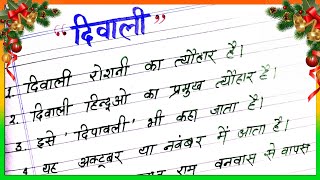 “दिवाली”
1. दिवाली रोशनी का त्यौहार है।
2. दिवाली हिन्दुओ का प्रमुख त्यौहार है।
3. इसे 'दिपावली' भी कहा जाता है।
4 यह अक्टूबर या नवंबर में आता है।
राम वनवास से वापस